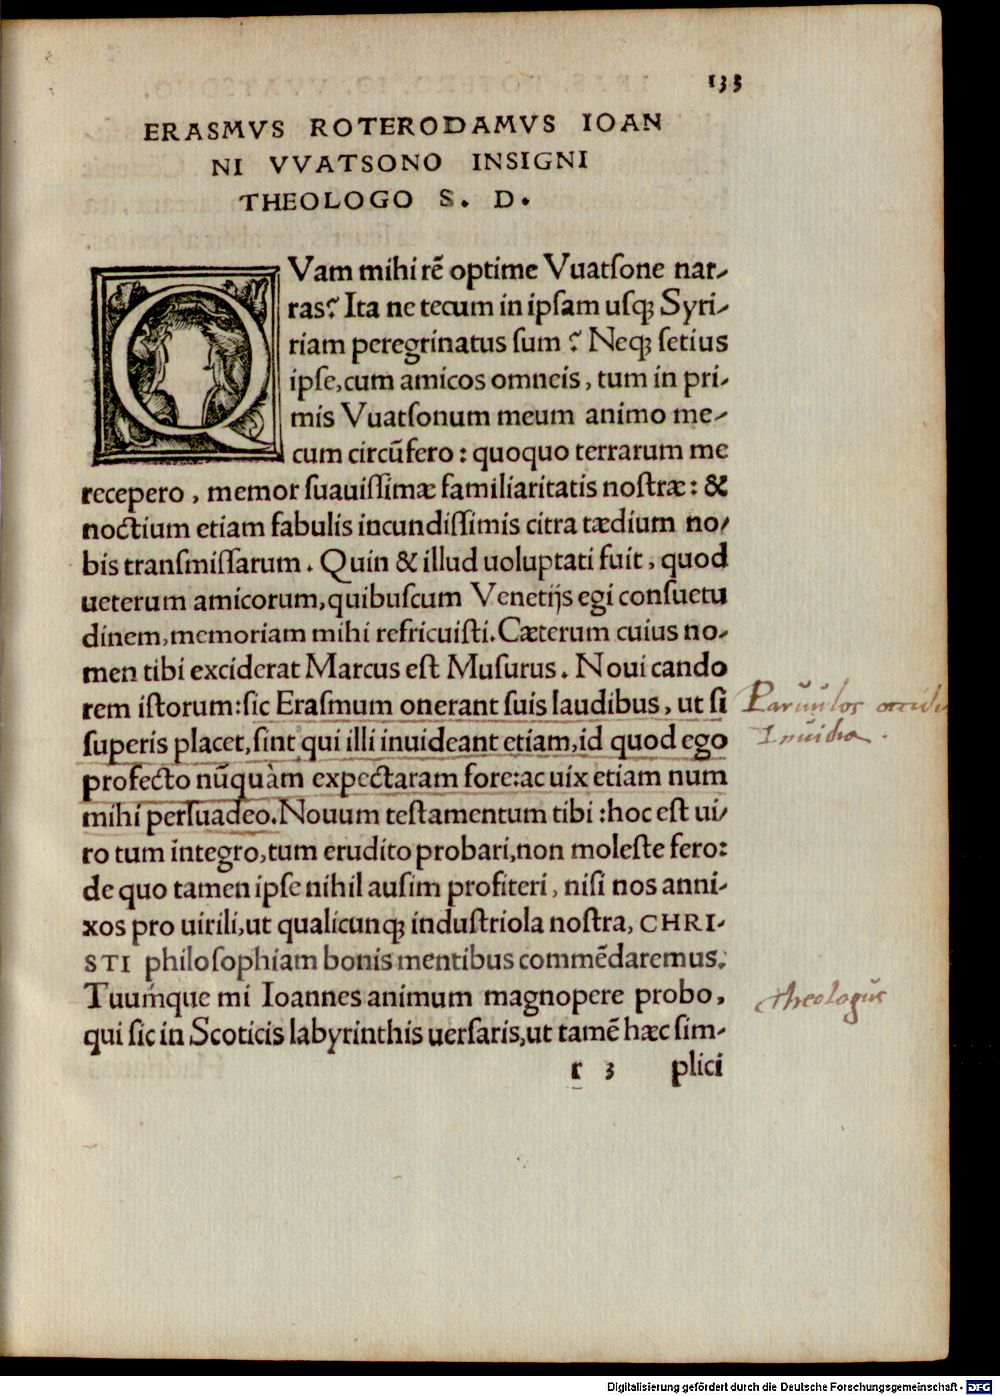 133
ERASMVS ROTERODAMVS IOAN
NI VVATSONO INSIGNI
THEOLOGO S. D.
QVam mihi rē optime Vuatſone nar-
ras? Ita ne tecum in ipſam uſqꝫ Syri-
riam peregrinatus ſum? Neqꝫ ſetius
ipſe, cum amicos omneis, tum in pri-
mis Vuatſonum meum animo me-
cum circūfero: quoquo terrarum me
recepero, memor ſuauiſſimæ familiaritatis noſtræ: &
noctium etiam fabulis incundiſſimis citra tædium no-
bis tranſmiſſarum. Quin & illud uoluptati fuit, quod
ueterum amicorum, quibuſcum Venetijs egi conſuetu
dinem, memoriam mihi refricuiſti. Cæterum cuius no-
men tibi exciderat Marcus eſt Muſurus. Noui cando
rem iſtorum: ſic Eraſmum onerant ſuis laudibus, ut ſi
ſuperis placet, ſint qui illi inuideant etiam, id quod ego
profecto nūquàm expectaram fore: ac uix etiam num
mihi perſuadeo. Nouum teſtamentum tibi: hoc eſt ui-
ro tum integro, tum erudito probari, non moleſte fero:
de quo tamen ipſe nihil auſim profiteri, niſi nos anni-
xos pro uirili, ut qualicunqꝫ induſtriola noſtra, CHRI-
STI philoſophiam bonis mentibus commēdaremus.
Tuumque mi Ioannes animum magnopere probo,
qui ſic in Scoticis labyrinthis uerſaris, ut tamē hæc ſim-
r 3 plici
Paruulos
Inuidia.
theologus
Digitalisierung gefördert durch die Deutsche Forschungsgemeinschaft - DFG